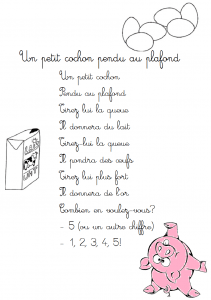 Un petit cochon pendu au plafond
Un petit cochon
Pendu au plafond
Tirez lui la queue
Il donnera du lait
Tirez-lui la queue
Il pondra des œufs
Tirez lui plus fort
Il donnera de l'or
Combien en voulez-vous?
- 5 (ou un autre chiffre)
- 1, 2, 3, 4, 5!